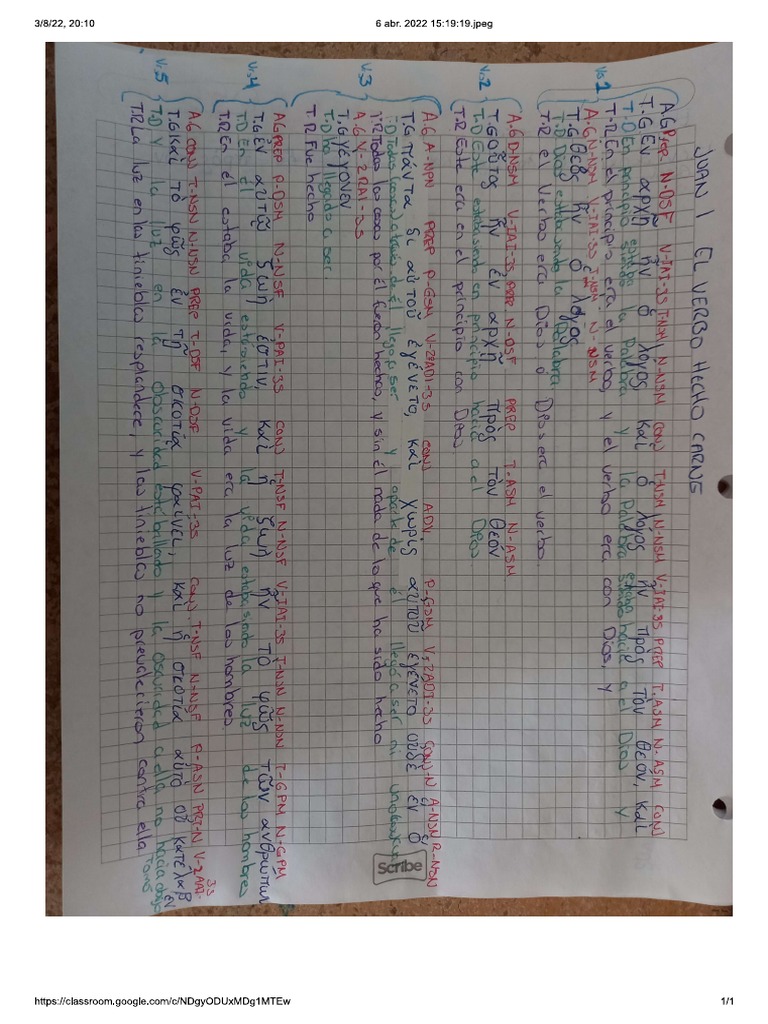 3/8/22, 20:10
6 abr. 2022 15:19:19.jpeg
JUAN 1 EL VERBO HECHO CARNE
Vs 1
A.G Prep N-DSF V-IAI-3S T-NSM N-NSM CONJ T-NSM N-NSM V-IAI-3S PREP T-ASM N-ASM CONJ
T.G Ἐν αρχῆ ἦν ὁ λόγος καὶ ὁ λόγος ἦν πρὸς τὸν θεόν, καὶ
T.D En principio estaba siendo la Palabra y la Palabra estaba siendo hacia a el Dios y
T-R En el principio era el verbo, y el verbo era con Dios, y
A.G N-NSM V-IAI-3S T-NSM N-NSM
T.G θεὸς ἦν ὁ λόγος
T.D Dios estaba siendo la Palabra
T.R el Verbo era Dios o Dios era el verbo
Vs 2
A.G D-NSM V-IAI-3S PREP N-DSF PREP T-ASM N-ASM
T.G Οὗτος ἦν ἐν αρχῇ πρὸς τὸν θεόν
T.D Este estaba siendo en principio hacia a el Dios
T.R Este era en el principio con Dios
V.3
A.G A-NPN PREP P-GSM V-2ADI-3S CONJ ADV. P-GSM V-2ADI-3S CONJ-N A-NSN R-NSN
T.G πάντα δι αὐτοῦ ἐγένετο, καὶ χωρὶς αὐτοῦ ἐγένετο οὐδέ ἐν ὃ
T.D Todas (cosas) a través de él llegó a ser y aparte de él llegó a ser ni
T.R Todas las cosas por él fueron hechas, y sin él nada de lo que ha sido hecho
A.G V-2RAI-3S
T.G γέγονεν
T.D ha llegado a ser.
T.R Fue hecho
V.4
A.G PREP P-DSM N-NSF V-PAI-3S CONJ T-NSF N-NSF V-IAI-3S T-NSN N-NSN T-GPM N-GPM
T.G ἐν αὐτῷ ζωὴ ἐστιν, καὶ ἡ ζωὴ ἦν τὸ φῶς τῶν ανθρώπων
T.D En él vida está siendo y la vida estaba siendo la luz de los hombres
T.R En él estaba la vida, y la vida era la luz de los hombres.
V.5
A.G CONJ T-NSN N-NSN PREP T-DSF N-DSF V-PAI-3S CONJ. T-NSF N-NSF P-ASN PRT-N V-2AAI-3S
T.G Καὶ τὸ φῶς ἐν τῇ σκοτία φαίνει, καὶ ἡ σκοτία αὐτὸ οὐ κατέλαβεν
T.D Y la luz en la obscuridad está brillando y la oscuridad a ella no
T.R La luz en las tinieblas resplandece, y las tinieblas no prevalecieron contra ella
Scribe
https://classroom.google.com/c/NDgyODUxMDg1MTEw
1/1